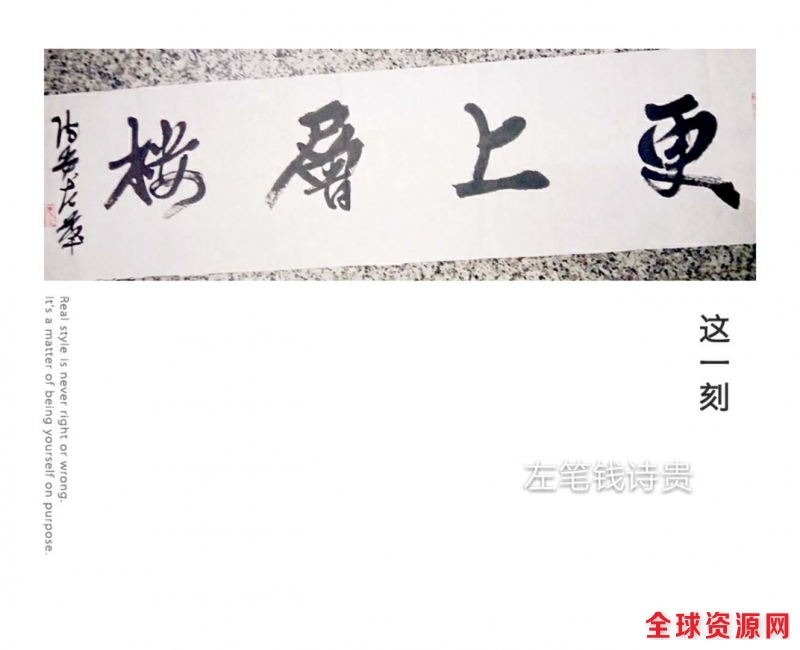 更上層楼
这一刻
左笔钱诗贵
Real style is never right or wrong.
It's a matter of being yourself on purpose.
全球资源网